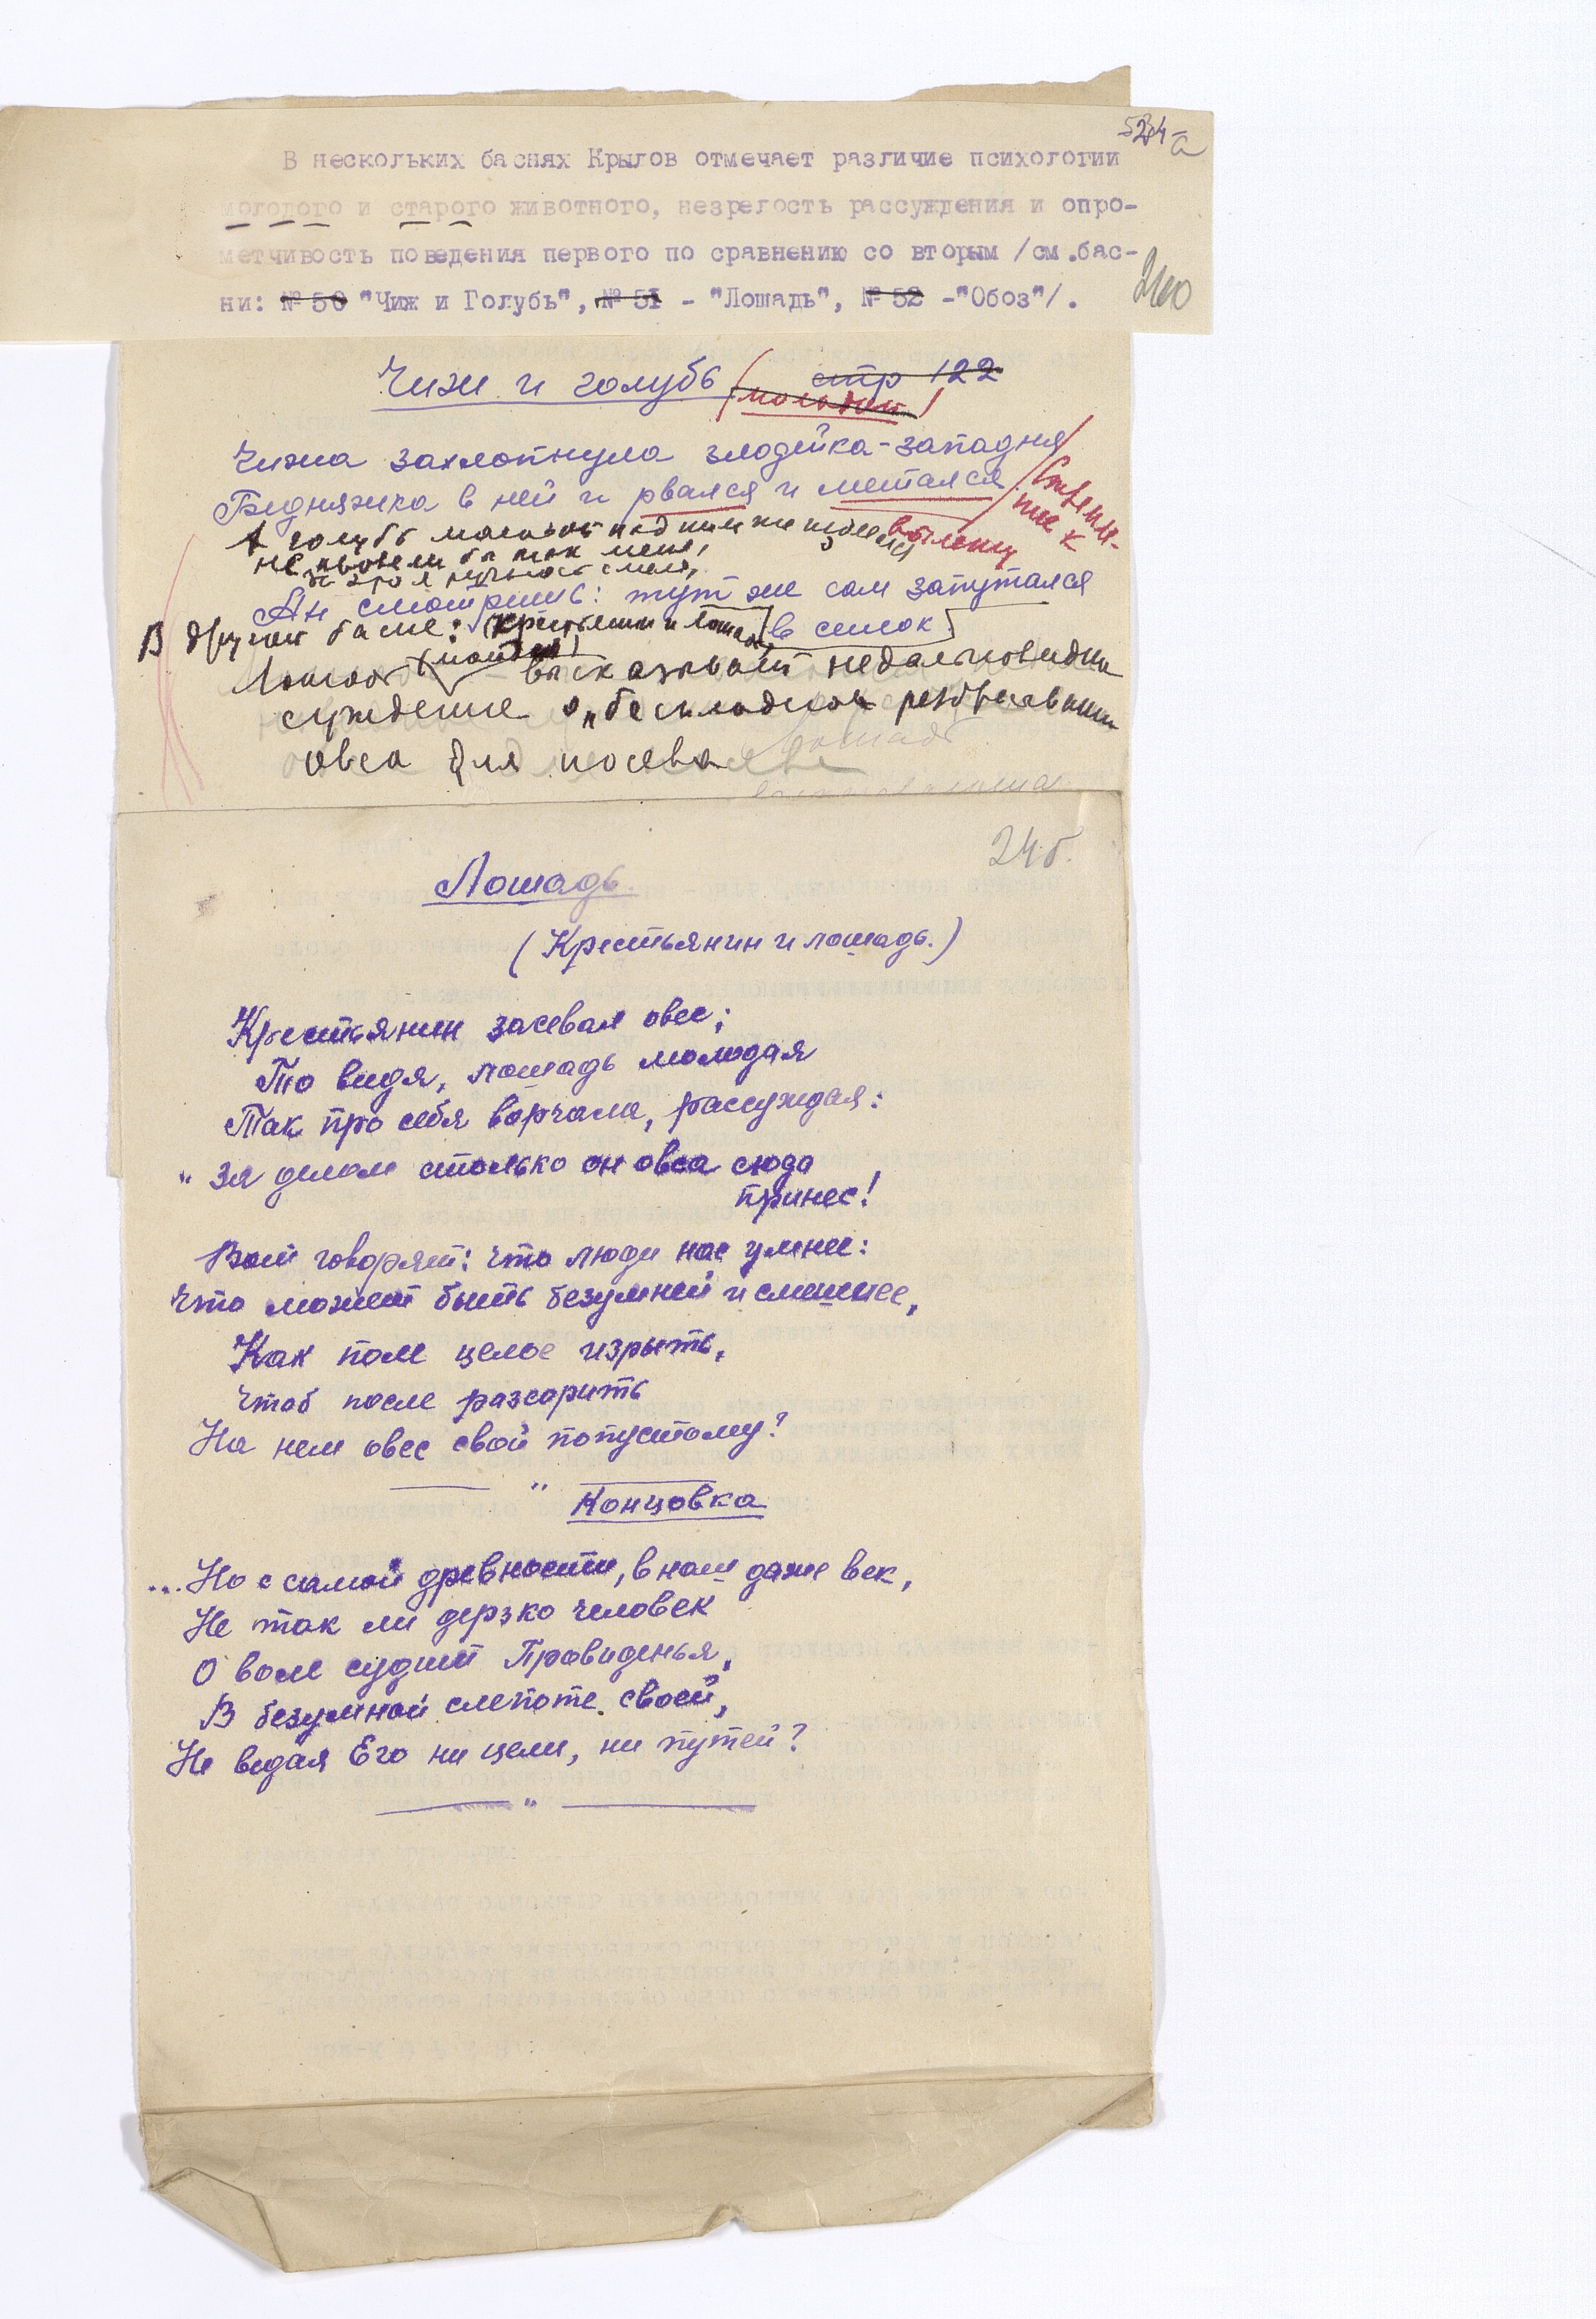 524-а
В нескольких баснях Крылов отмечает различие психологии
молодого и старого животного, незрелость рассуждения и опро-
метчивость поведения первого по сравнению со вторым /см.бас-
ни: № 50 "Чиж и Голубь", № 51 - "Лошадь", № 52 -"Обоз"/.
Чиж и голубь стр 122
(молодой)
Чижа захлопнула злодейка-западня
Бедняжка в ней и рвался и метался
Стремле-
ние к
вылету
А голубь молодой над ним же издевался
не провели бы так меня,
За это я ручаюсь смело,
Ан смотришь: тут же сам запутался
в силок
В другой басне: (Крестьянин и Лошадь)
Лошадь (молодая) высказывает недальновидное
суждение о "бесплодном разбрасывании
овса для посева
Лошадь
24б.
Лошадь.
(Крестьянин и лошадь.)
Крестьянин засевал овес;
То видя, лошадь молодая
Так про себя ворчала, рассуждая:
"За делом столько он овса сюда
принес!
Вот говорят: что люди нас умнее:
Что может быть безумней и смешнее,
Как поле целое изрыть,
Чтоб после рассорить
На нем овес свой попустому?
"
Концовка
...Но с самой древности, в наш даже век,
Не так ли дерзко человек
О воле судит Провиденья,
В безумной слепоте своей,
Не ведая Его ни цели, ни путей?
"